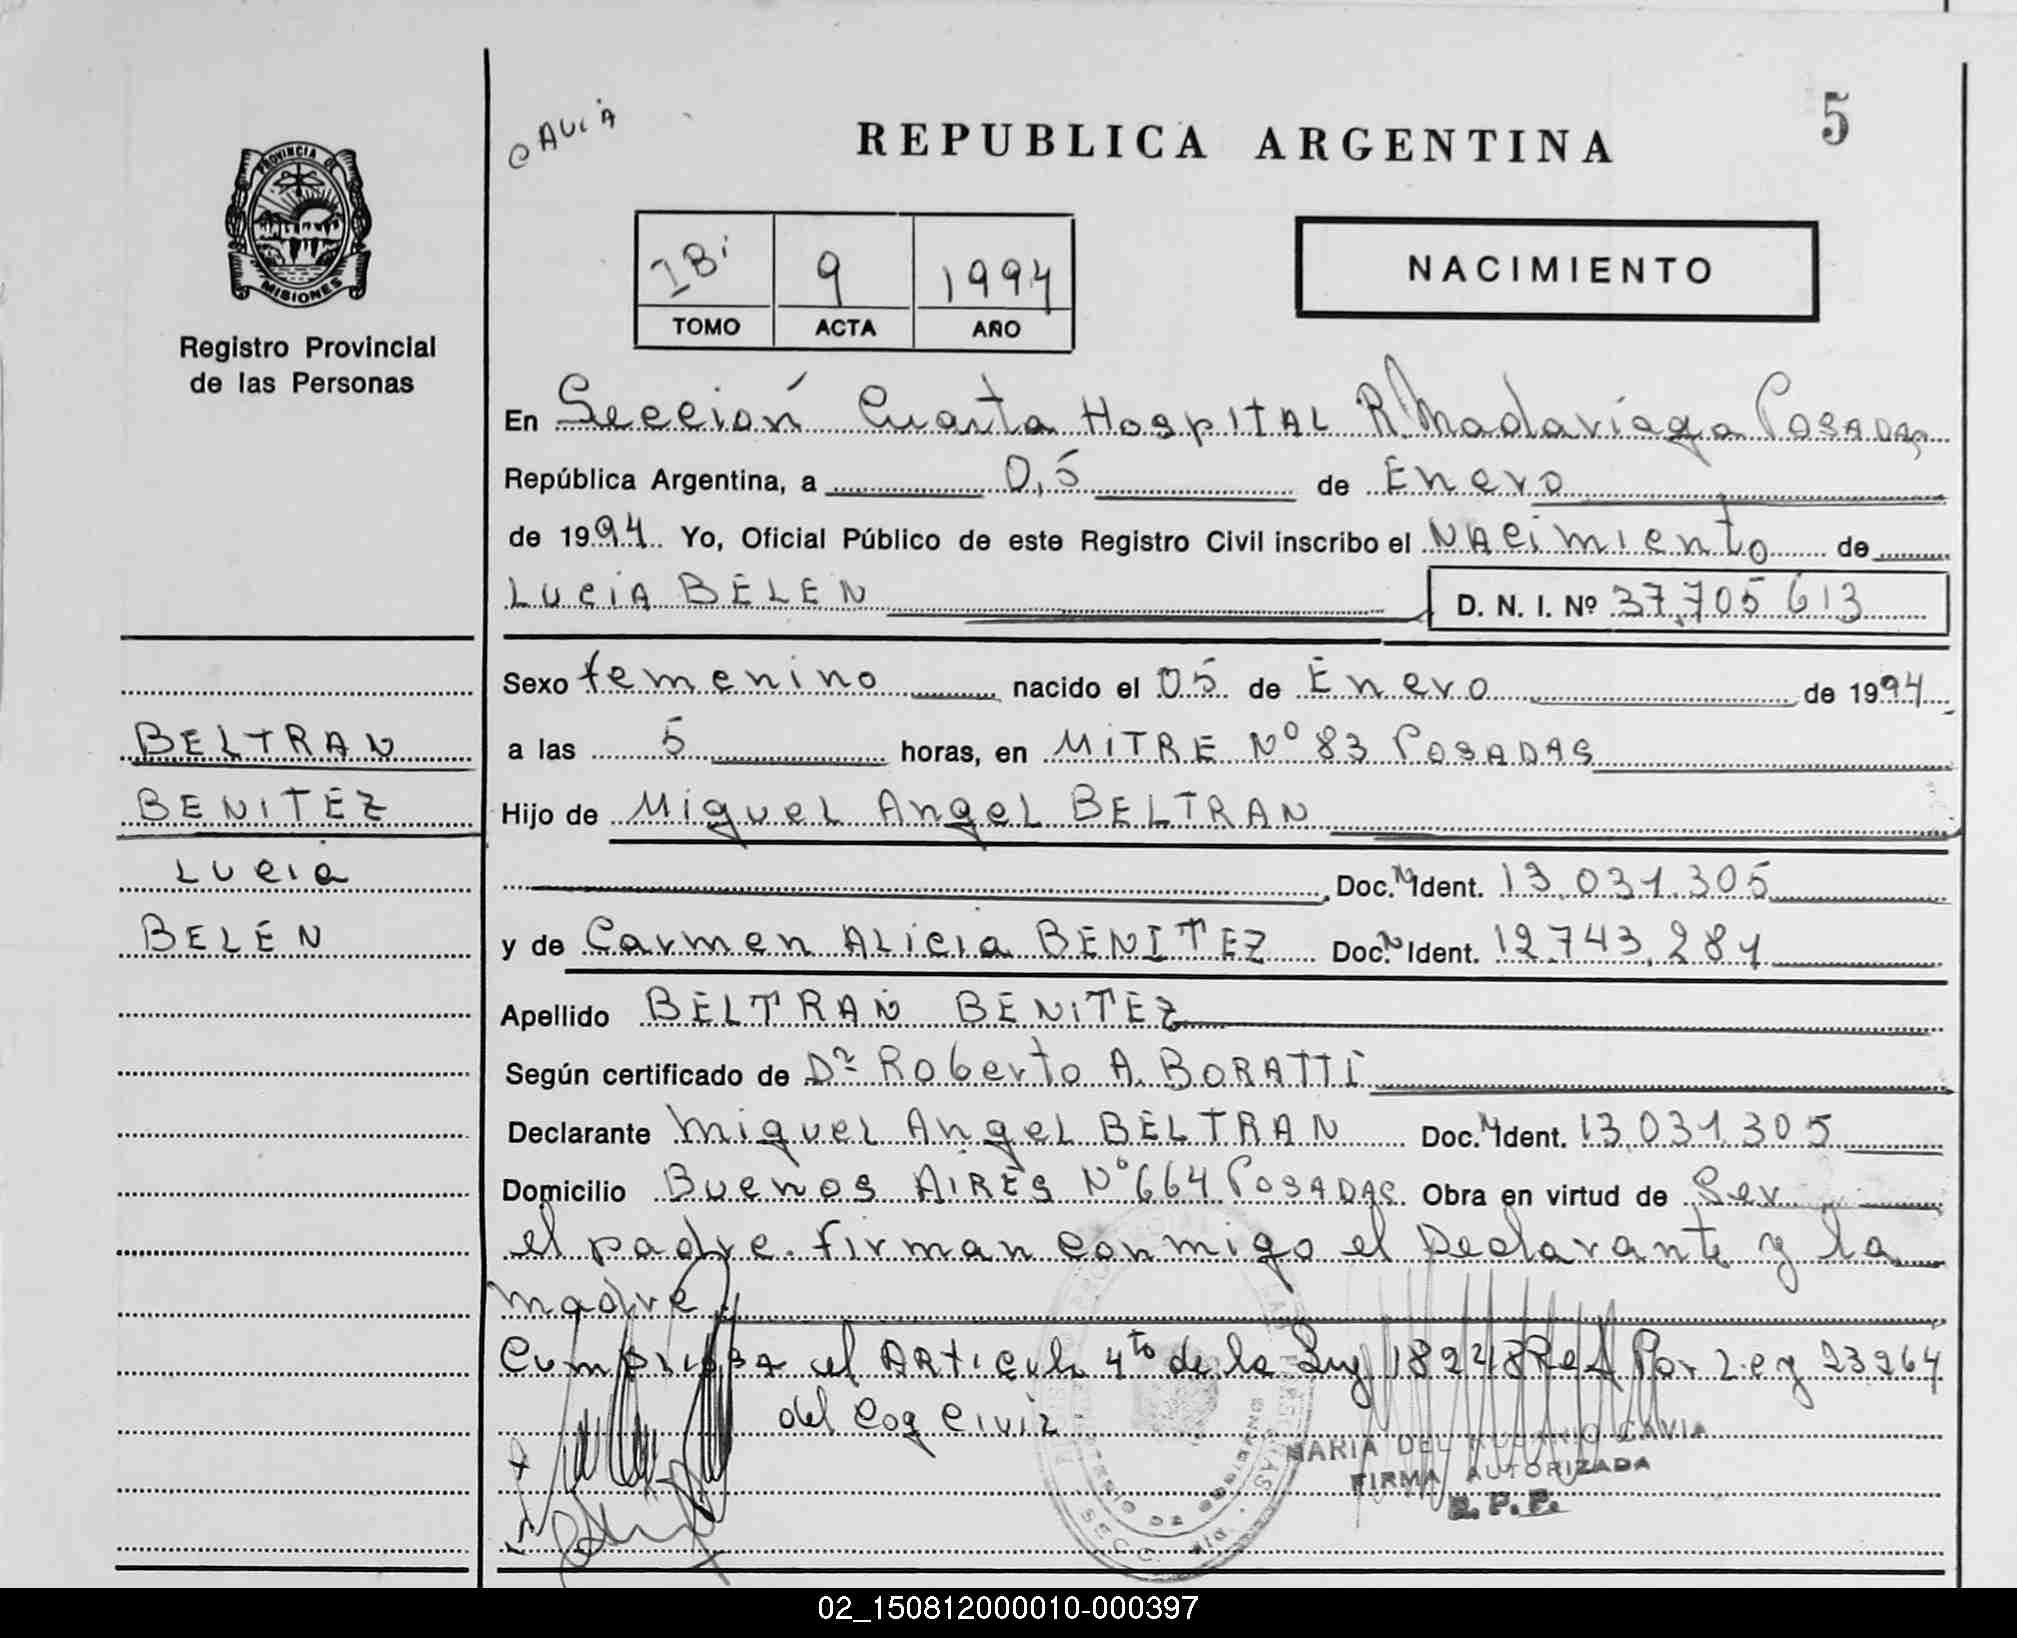 CAVIA
REPUBLICA ARGENTINA
5
PROVINCIA DE
MISIONES
Registro Provincial
de las Personas
IBi 9 1994
TOMO ACTA AÑO
NACIMIENTO
En Sección Cuarta Hospital R. Madariaga Posadas
República Argentina, a 05 de Enero
de 1994 Yo, Oficial Público de este Registro Civil inscribo el NACimiento de
Lucia BELEN
D. N. I. Nº 37.705 613
Sexo femenino nacido el 05 de Enero de 1994
a las 5 horas, en MITRE Nº 83 POSADAS
Hijo de Miguel Angel BELTRAN
Doc. N Ident. 13.031.305
y de Carmen ALicia BENITEZ Doc. N Ident. 12.743.281
Apellido BELTRAN BENITEZ
Según certificado de Dr Roberto A. BORATTI
Declarante Miguel Angel BELTRAN Doc. N Ident. 13.031.305
Domicilio Buenos AIRES Nº 664 POSADAS Obra en virtud de Ser
el padre. firman conmigo el Declarante y la
madre
Cumplida el ARticulo 4to de la Ley 18248 Ref Por Ley 23264
del Cog Civil
MARIA DEL ROSARIO CAVIA
FIRMA AUTORIZADA
R. P. P.
BELTRAN
BENITEZ
Lucia
BELÉN
02_150812000010-000397